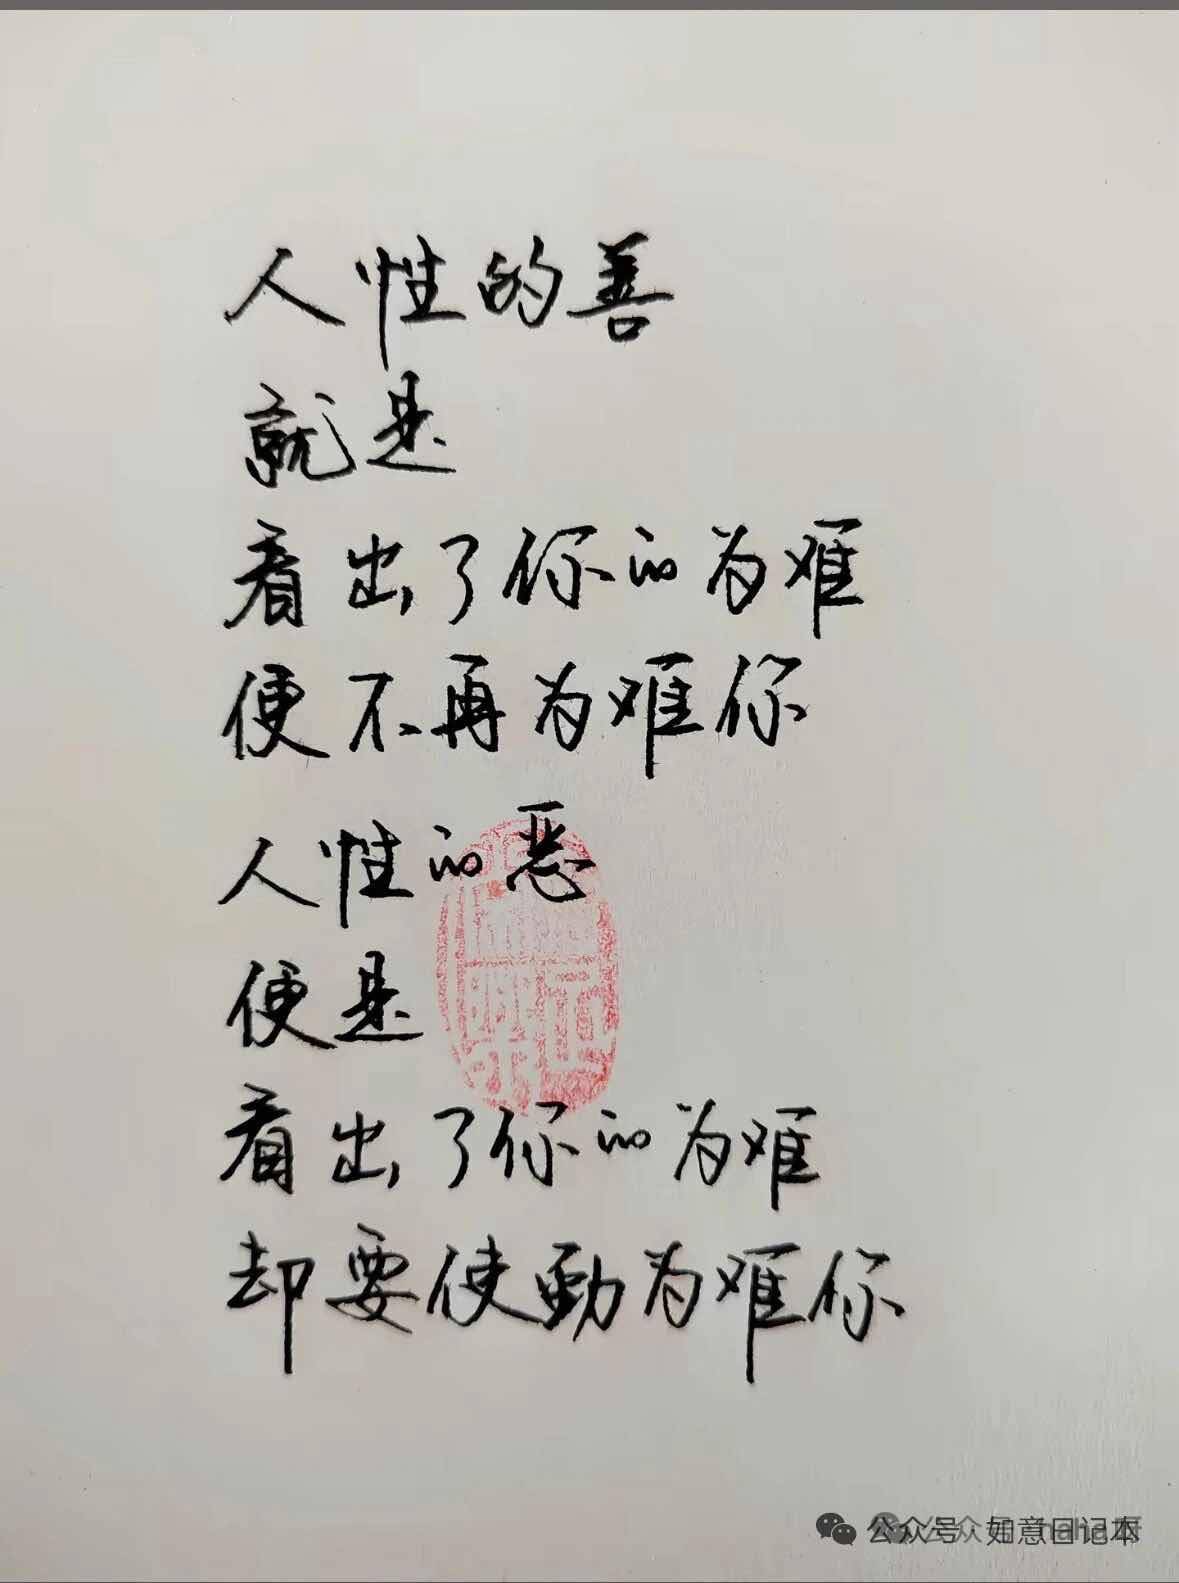 人性的善
就是
看出了你的为难
便不再为难你
人性的恶
便是
看出了你的为难
却要使勁为难你
公众号·如意日记本